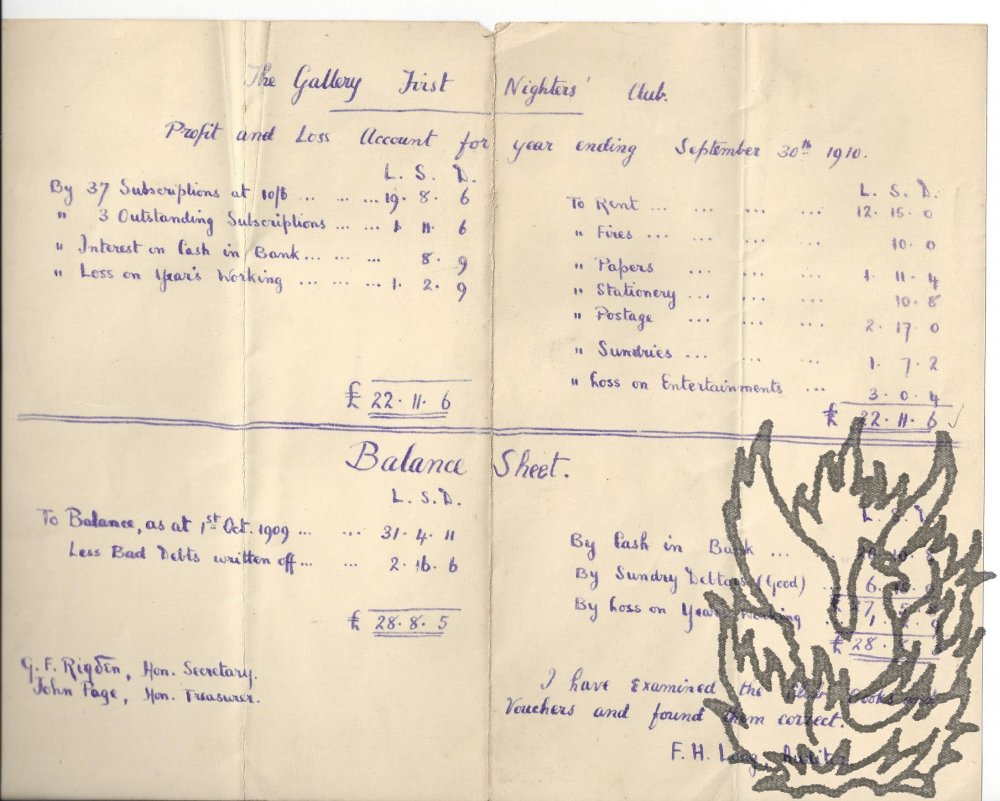 The Gallery First Nighters' Club.
Profit and Loss Account for year ending September 30th 1910.
L. S. D.
By 37 Subscriptions at 10/6 ... ... ... 19. 8. 6
" 3 Outstanding Subscriptions ... ... 1. 11. 6
" Interest on Cash in Bank ... ... ... 8. 9
" Loss on Year's Working ... ... ... 1. 2. 9
£ 22. 11. 6
L. S. D.
To Rent ... ... ... ... 12. 15. 0
" Fires ... ... ... ... 10. 0
" Papers ... ... ... 1. 11. 4
" Stationery ... ... ... 10. 8
" Postage ... ... ... 2. 17. 0
" Sundries ... ... ... 1. 7. 2
" Loss on Entertainments ... 3. 0. 4
£ 22. 11. 6
Balance Sheet.
L. S. D.
To Balance, as at 1st Oct. 1909 ... ... 31. 4. 11
Less Bad Debts written off ... ... 2. 16. 6
£ 28. 8. 5
G. F. Rigden, Hon. Secretary.
John Page, Hon. Treasurer.
L. S. D.
By Cash in Bank ...
By Sundry Debtors (Good) ... 6.
By Loss on Year's Working
£ 28.
I have examined the Club Books and
Vouchers and found them correct.
F. H. Long, Auditor